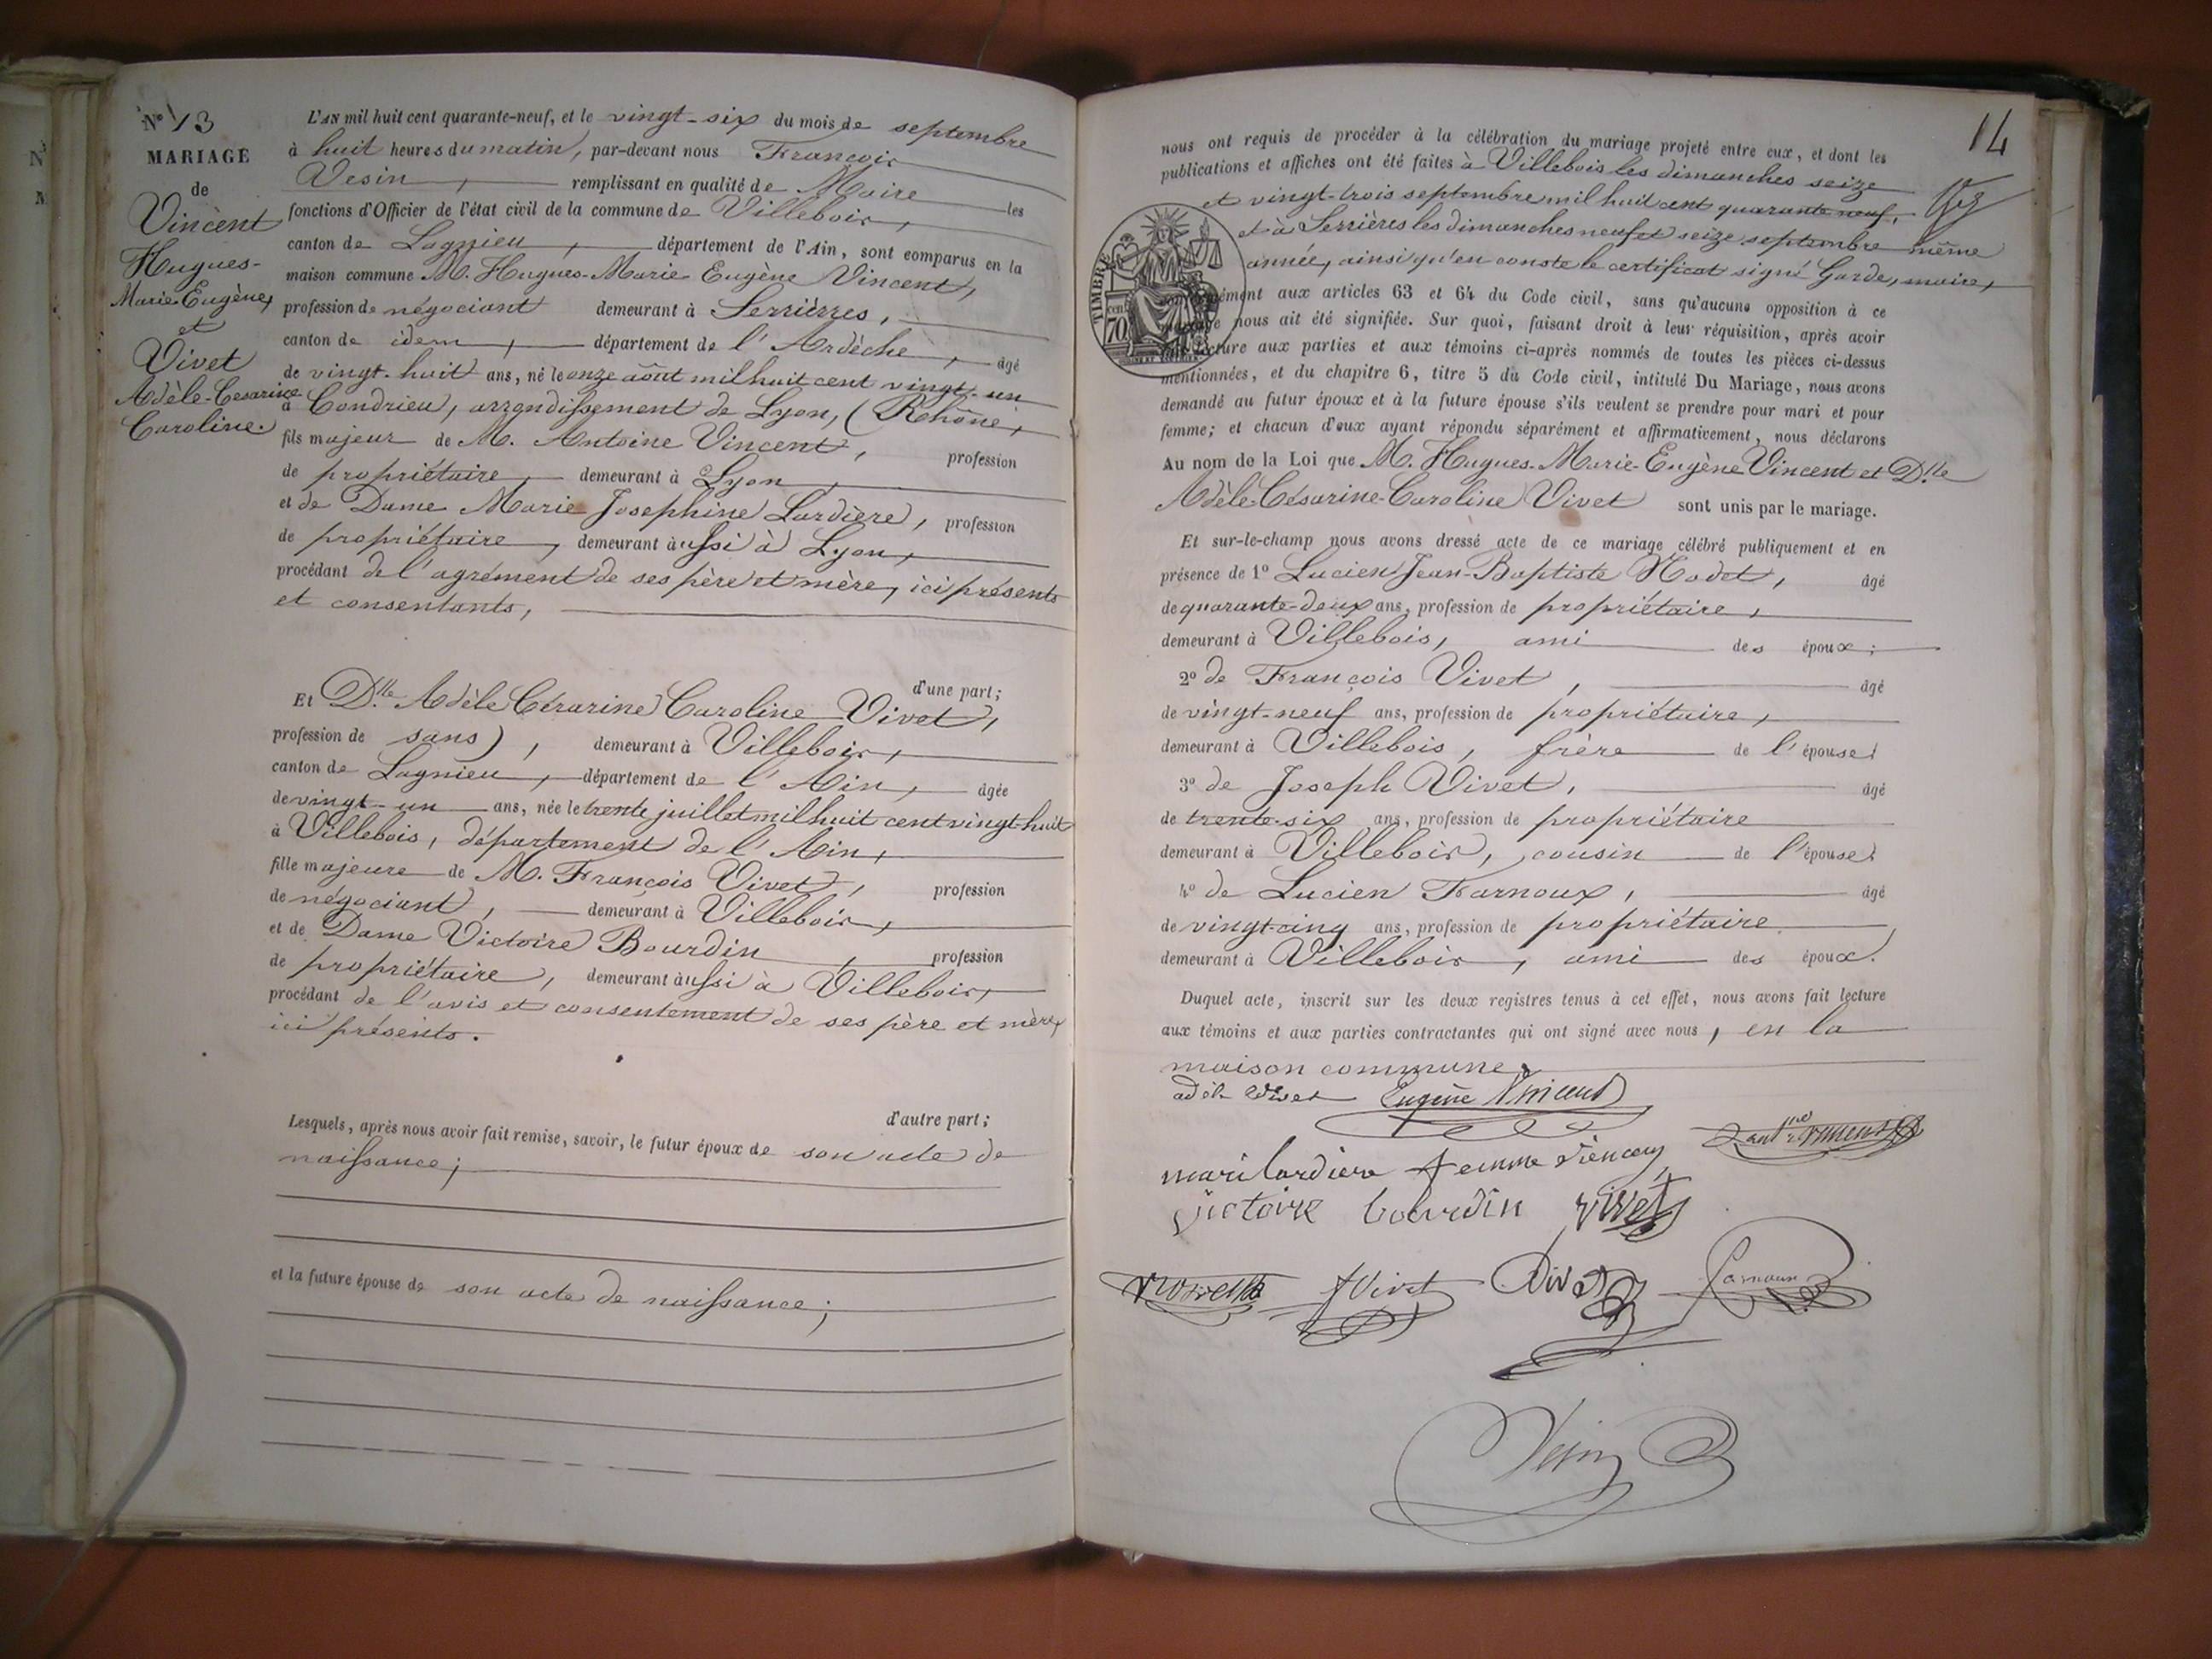 N° 13
MARIAGE
de
Vincent
Hugues-
Marie-Eugène,
et
Vivet
Adèle-Cesarine
Caroline.
L'AN mil huit cent quarante-neuf, et le vingt-six du mois de septembre
à huit heures du matin, par-devant nous François
Vesin, remplissant en qualité de Maire les
fonctions d'Officier de l'état civil de la commune de Villebois,
canton de Lagnieu, département de l'Ain, sont comparus en la
maison commune M. Hugues-Marie Eugène Vincent,
profession de négociant demeurant à Serrières,
canton de idem, département de l'Ardèche, âgé
de vingt-huit ans, né le onze août mil huit cent vingt-un
à Condrieu, arrondissement de Lyon, (Rhône,
fils majeur de M. Antoine Vincent, profession
de propriétaire, demeurant à Lyon,
et de Dame Marie Josephine Lardière, profession
de propriétaire, demeurant aussi à Lyon,
procédant de l'agrément de ses père et mère, ici présents
et consentants,
d'une part;
Et Dlle Adèle Cérarine Caroline Vivet,
profession de sans, demeurant à Villebois,
canton de Lagnieu, département de l'Ain, âgée
de vingt-un ans, née le trente juillet mil huit cent vingt-huit
à Villebois, département de l'Ain,
fille majeure de M. François Vivet, profession
de négociant, demeurant à Villebois,
et de Dame Victoire Bourdin, profession
de propriétaire, demeurant aussi à Villebois,
procédant de l'avis et consentement de ses père et mère,
ici présents.
d'autre part;
Lesquels, après nous avoir fait remise, savoir, le futur époux de son acte de
naissance;
et la future épouse de son acte de naissance;
14
nous ont requis de procéder à la célébration du mariage projeté entre eux, et dont les
publications et affiches ont été faites à Villebois les dimanches seize
et vingt-trois septembre mil huit cent quarante neuf,
et à Serrières les dimanches neuf et seize septembre même
année, ainsi qu'en conste le certificat signé Garde, maire,
TIMBRE
70
conformément aux articles 63 et 64 du Code civil, sans qu'aucune opposition à ce
mariage nous ait été signifiée. Sur quoi, faisant droit à leur réquisition, après avoir
fait lecture aux parties et aux témoins ci-après nommés de toutes les pièces ci-dessus
mentionnées, et du chapitre 6, titre 5 du Code civil, intitulé Du Mariage, nous avons
demandé au futur époux et à la future épouse s'ils veulent se prendre pour mari et pour
femme; et chacun d'eux ayant répondu séparément et affirmativement, nous déclarons
Au nom de la Loi que M. Hugues-Marie-Eugène Vincent et Dlle
Adèle-Césarine-Caroline Vivet sont unis par le mariage.
Et sur-le-champ nous avons dressé acte de ce mariage célébré publiquement et en
présence de 1° Lucien Jean-Baptiste Nodet, âgé
de quarante-deux ans, profession de propriétaire,
demeurant à Villebois, ami des époux;
2° de François Vivet, âgé
de vingt-neuf ans, profession de propriétaire,
demeurant à Villebois, frère de l'épouse;
3° de Joseph Vivet, âgé
de trente-six ans, profession de propriétaire
demeurant à Villebois, cousin de l'épouse;
4° de Lucien Farnoux, âgé
de vingt-cinq ans, profession de propriétaire,
demeurant à Villebois, ami des époux.
Duquel acte, inscrit sur les deux registres tenus à cet effet, nous avons fait lecture
aux témoins et aux parties contractantes qui ont signé avec nous, en la
maison commune.
adèle Vivet Eugène Vincent
antne Vincent
mari lardiere femme viencent
victoire bourdin vivet
f Vivet Vivet farnoux
Vesin